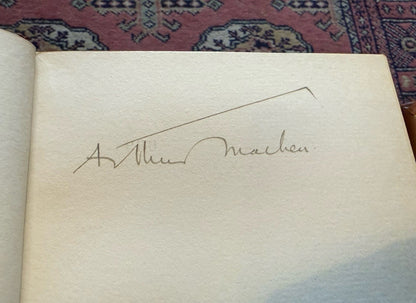 Arthur Machen